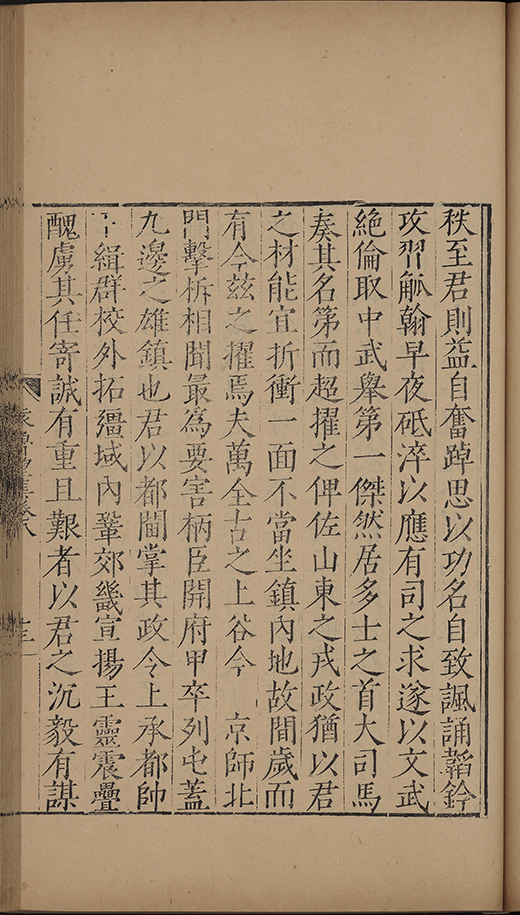 秩至君則益自奮踔思以功名自致諷誦韜鈐
攻習觚翰早夜砥淬以應有司之求遂以文武
絶倫取中武舉第一傑然居多士之首大司馬
奏其名第而超擢之俾佐山東之戎政猶以君
之材能宜折衝一面不當坐鎮內地故間歲而
有今茲之擢焉夫萬全古之上谷今　京師北
門擊柝相聞最爲要害柄臣開府甲卒列屯蓋
九邊之雄鎮也君以都閫掌其政令上承都帥
下緝群校外拓疆域內鞏郊畿宣揚王靈震疊
醜虜其任寄誠有重且艱者以君之沉毅有謀